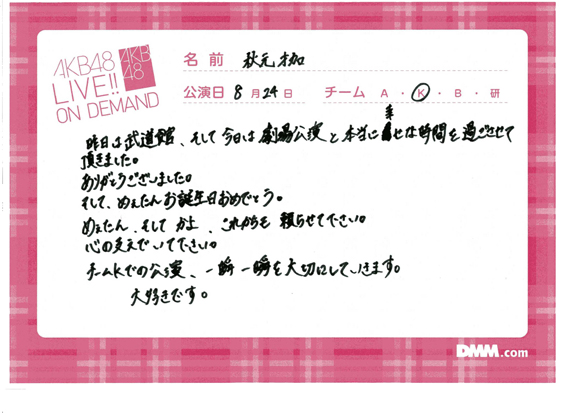 AKB48
LIVE!!
ON DEMAND
AKB
48
名前 秋元才加
公演日 8月24日 チーム A・K・B・研
昨日は武道館、そして今日は劇場公演と本当に幸せな時間を過ごさせて
頂きました。
ありがとうございました。
そして、めぇたんお誕生日おめでとう。
めぇたん、そしてかよ、これからも頼らせて下さい。
心の支えでいて下さい。
チームKでの公演、一瞬一瞬を大切にしていきます。
大好きです。
DMM.com